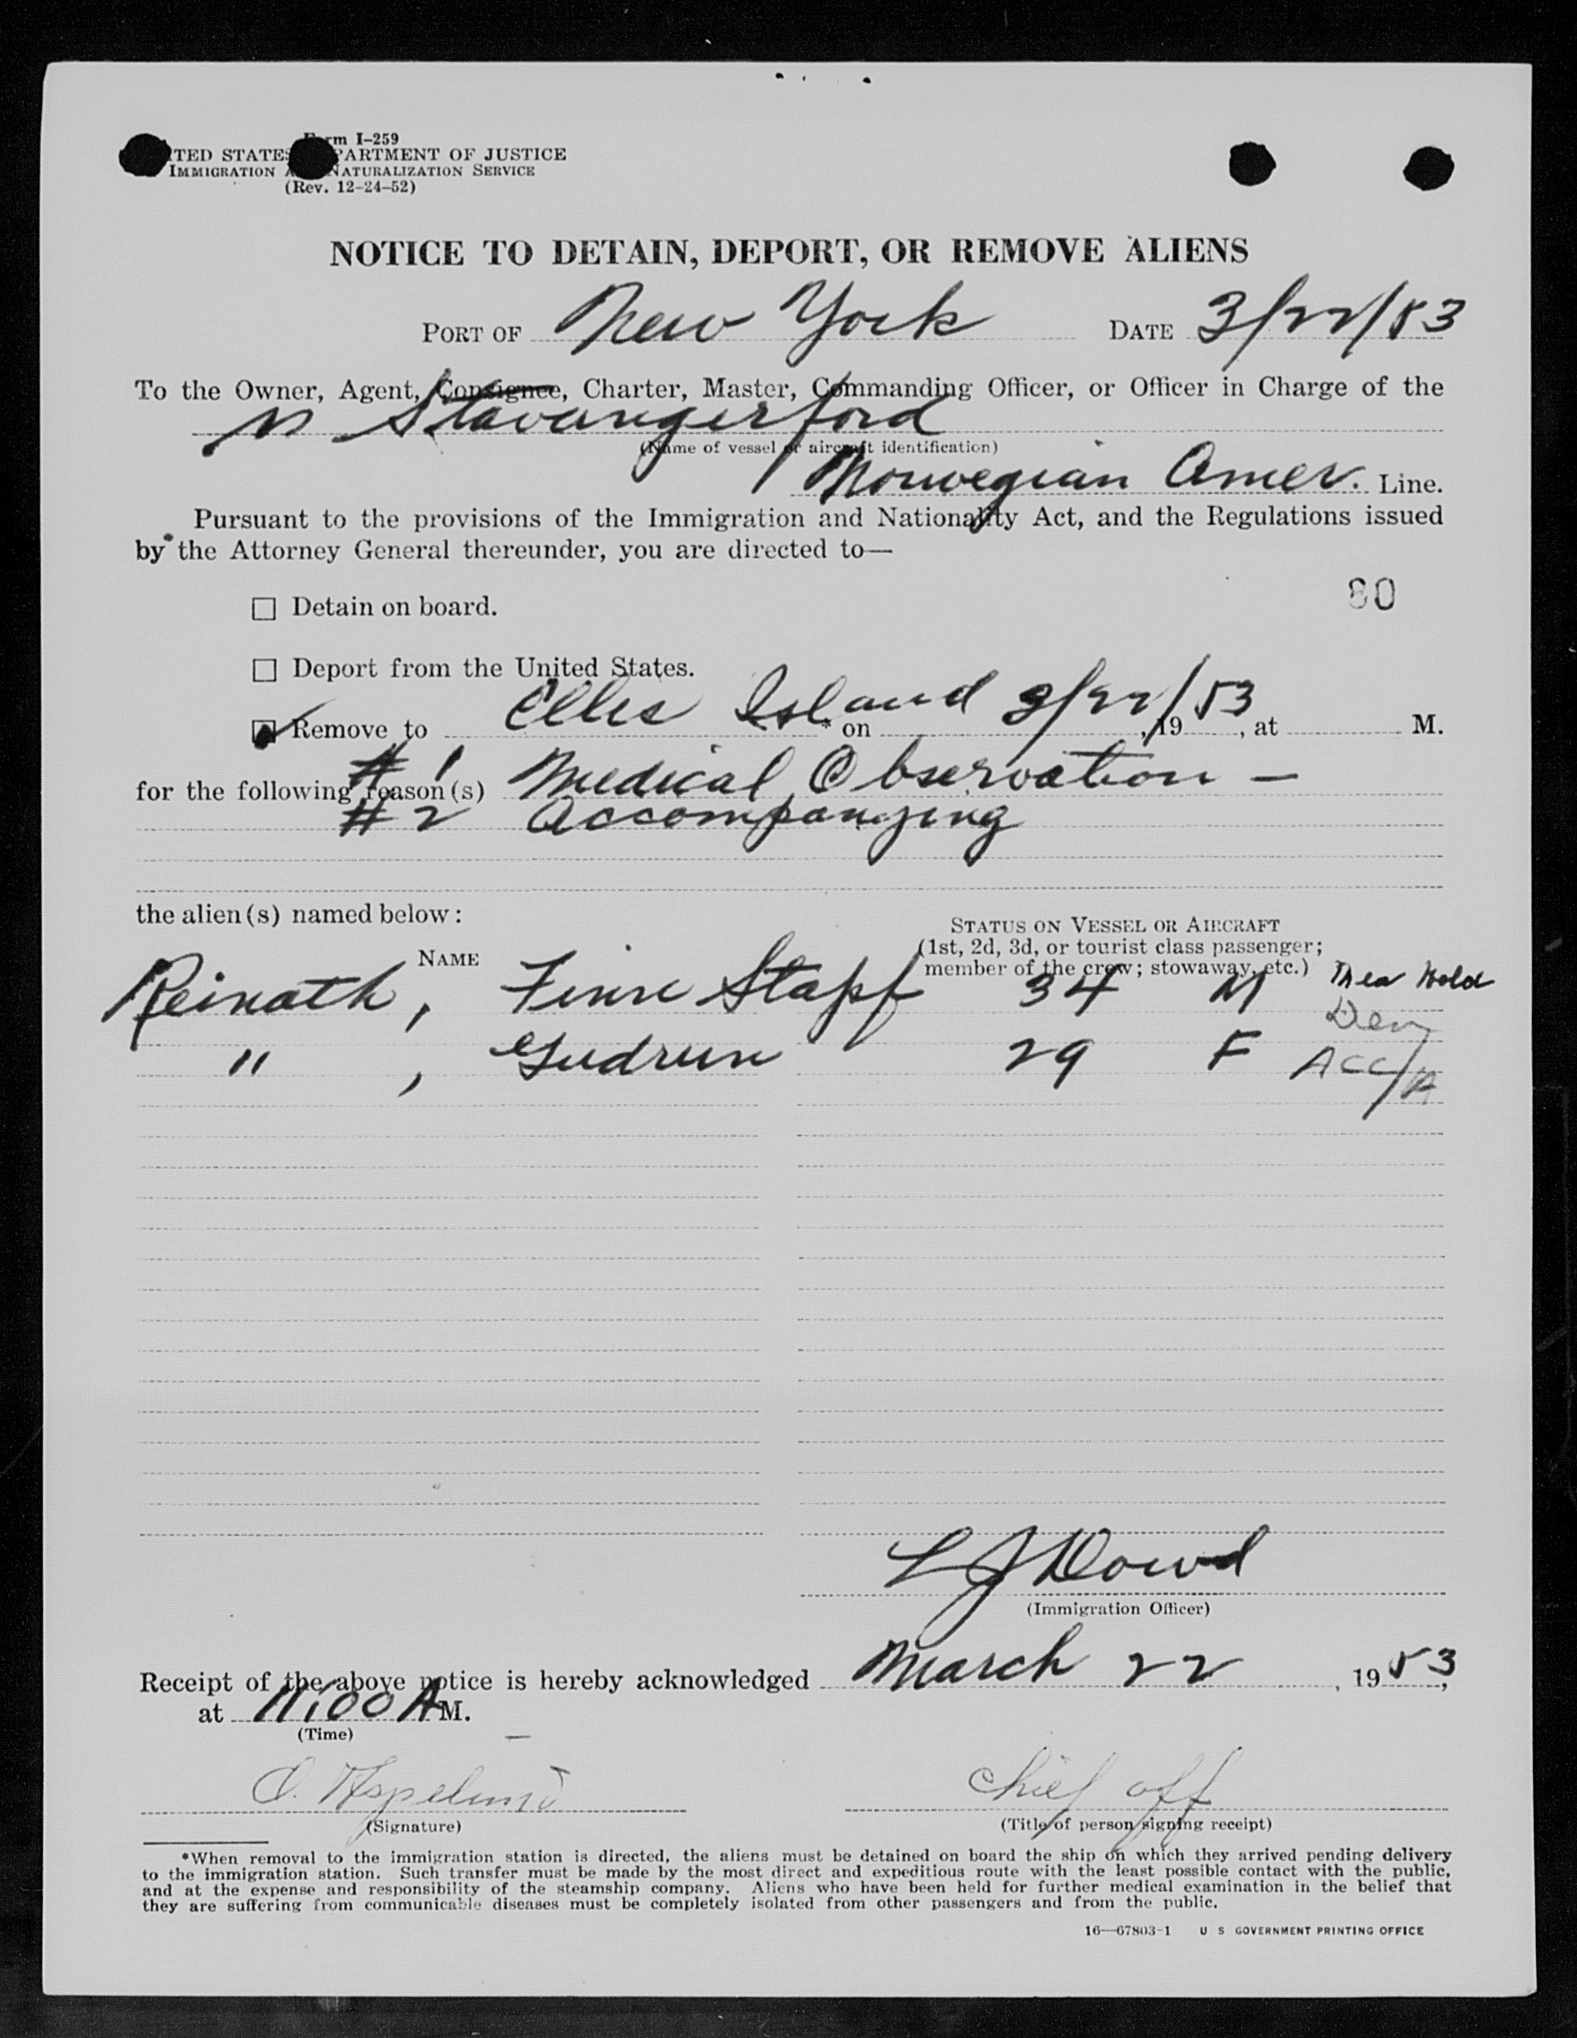 Form I-259
UNITED STATES DEPARTMENT OF JUSTICE
IMMIGRATION AND NATURALIZATION SERVICE
(Rev. 12-24-52)
NOTICE TO DETAIN, DEPORT, OR REMOVE ALIENS
PORT OF New York DATE 3/22/53
To the Owner, Agent, Consignee, Charter, Master, Commanding Officer, or Officer in Charge of the
Stavangerfjord
(Name of vessel or aircraft identification)
Norwegian Amer. Line.
Pursuant to the provisions of the Immigration and Nationality Act, and the Regulations issued
by the Attorney General thereunder, you are directed to—
80
☐ Detain on board.
☐ Deport from the United States.
☑ Remove to Ellis Island * on 3/22/, 1953, at M.
for the following reason(s) #1 Medical Observation —
#2 Accompanying
the alien(s) named below:
STATUS ON VESSEL OR AIRCRAFT
NAME (1st, 2d, 3d, or tourist class passenger;
member of the crew; stowaway, etc.)
Reinath, Finn Stapf 34 M Med Hold
" , Gudrun 29 F Acc/
L J Dowd
(Immigration Officer)
Receipt of the above notice is hereby acknowledged March 22, 1953,
at 11:00 A M.
(Time)
Chief off
(Signature) (Title of person signing receipt)
*When removal to the immigration station is directed, the aliens must be detained on board the ship on which they arrived pending delivery
to the immigration station. Such transfer must be made by the most direct and expeditious route with the least possible contact with the public,
and at the expense and responsibility of the steamship company. Aliens who have been held for further medical examination in the belief that
they are suffering from communicable diseases must be completely isolated from other passengers and from the public.
16—67803-1 U S GOVERNMENT PRINTING OFFICE